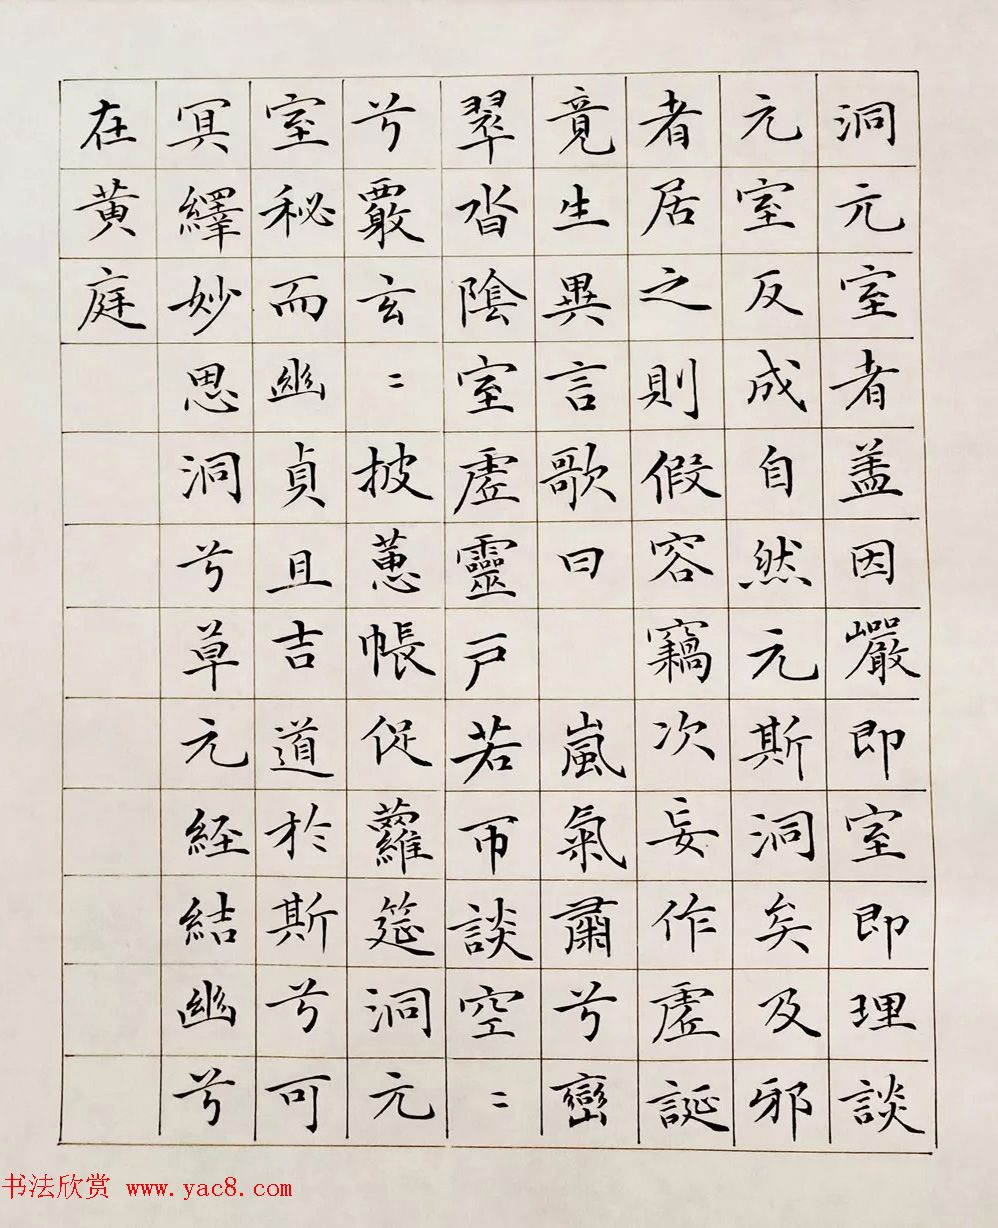 洞元室者蓋因巖即室即理談
元室反成自然元斯洞矣及邪
者居之則假容竊次妄作虛誕
竟生異言歌曰嵐氣肅兮巒
翠沓陰室虛靈戶若帀談空〻
兮覈玄〻披蕙帳促蘿筵洞元
室秘而幽貞且吉道於斯兮可
冥繹妙思洞兮草元經結幽兮
在黃庭
书法欣赏 www.yac8.com